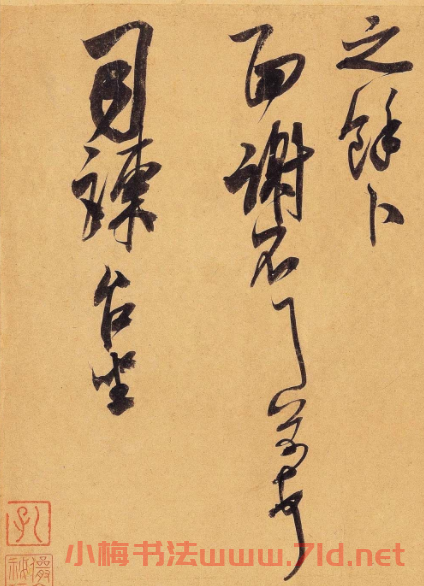 之餘卜
面謝不
司諫台坐
小梅书法www.7ld.net